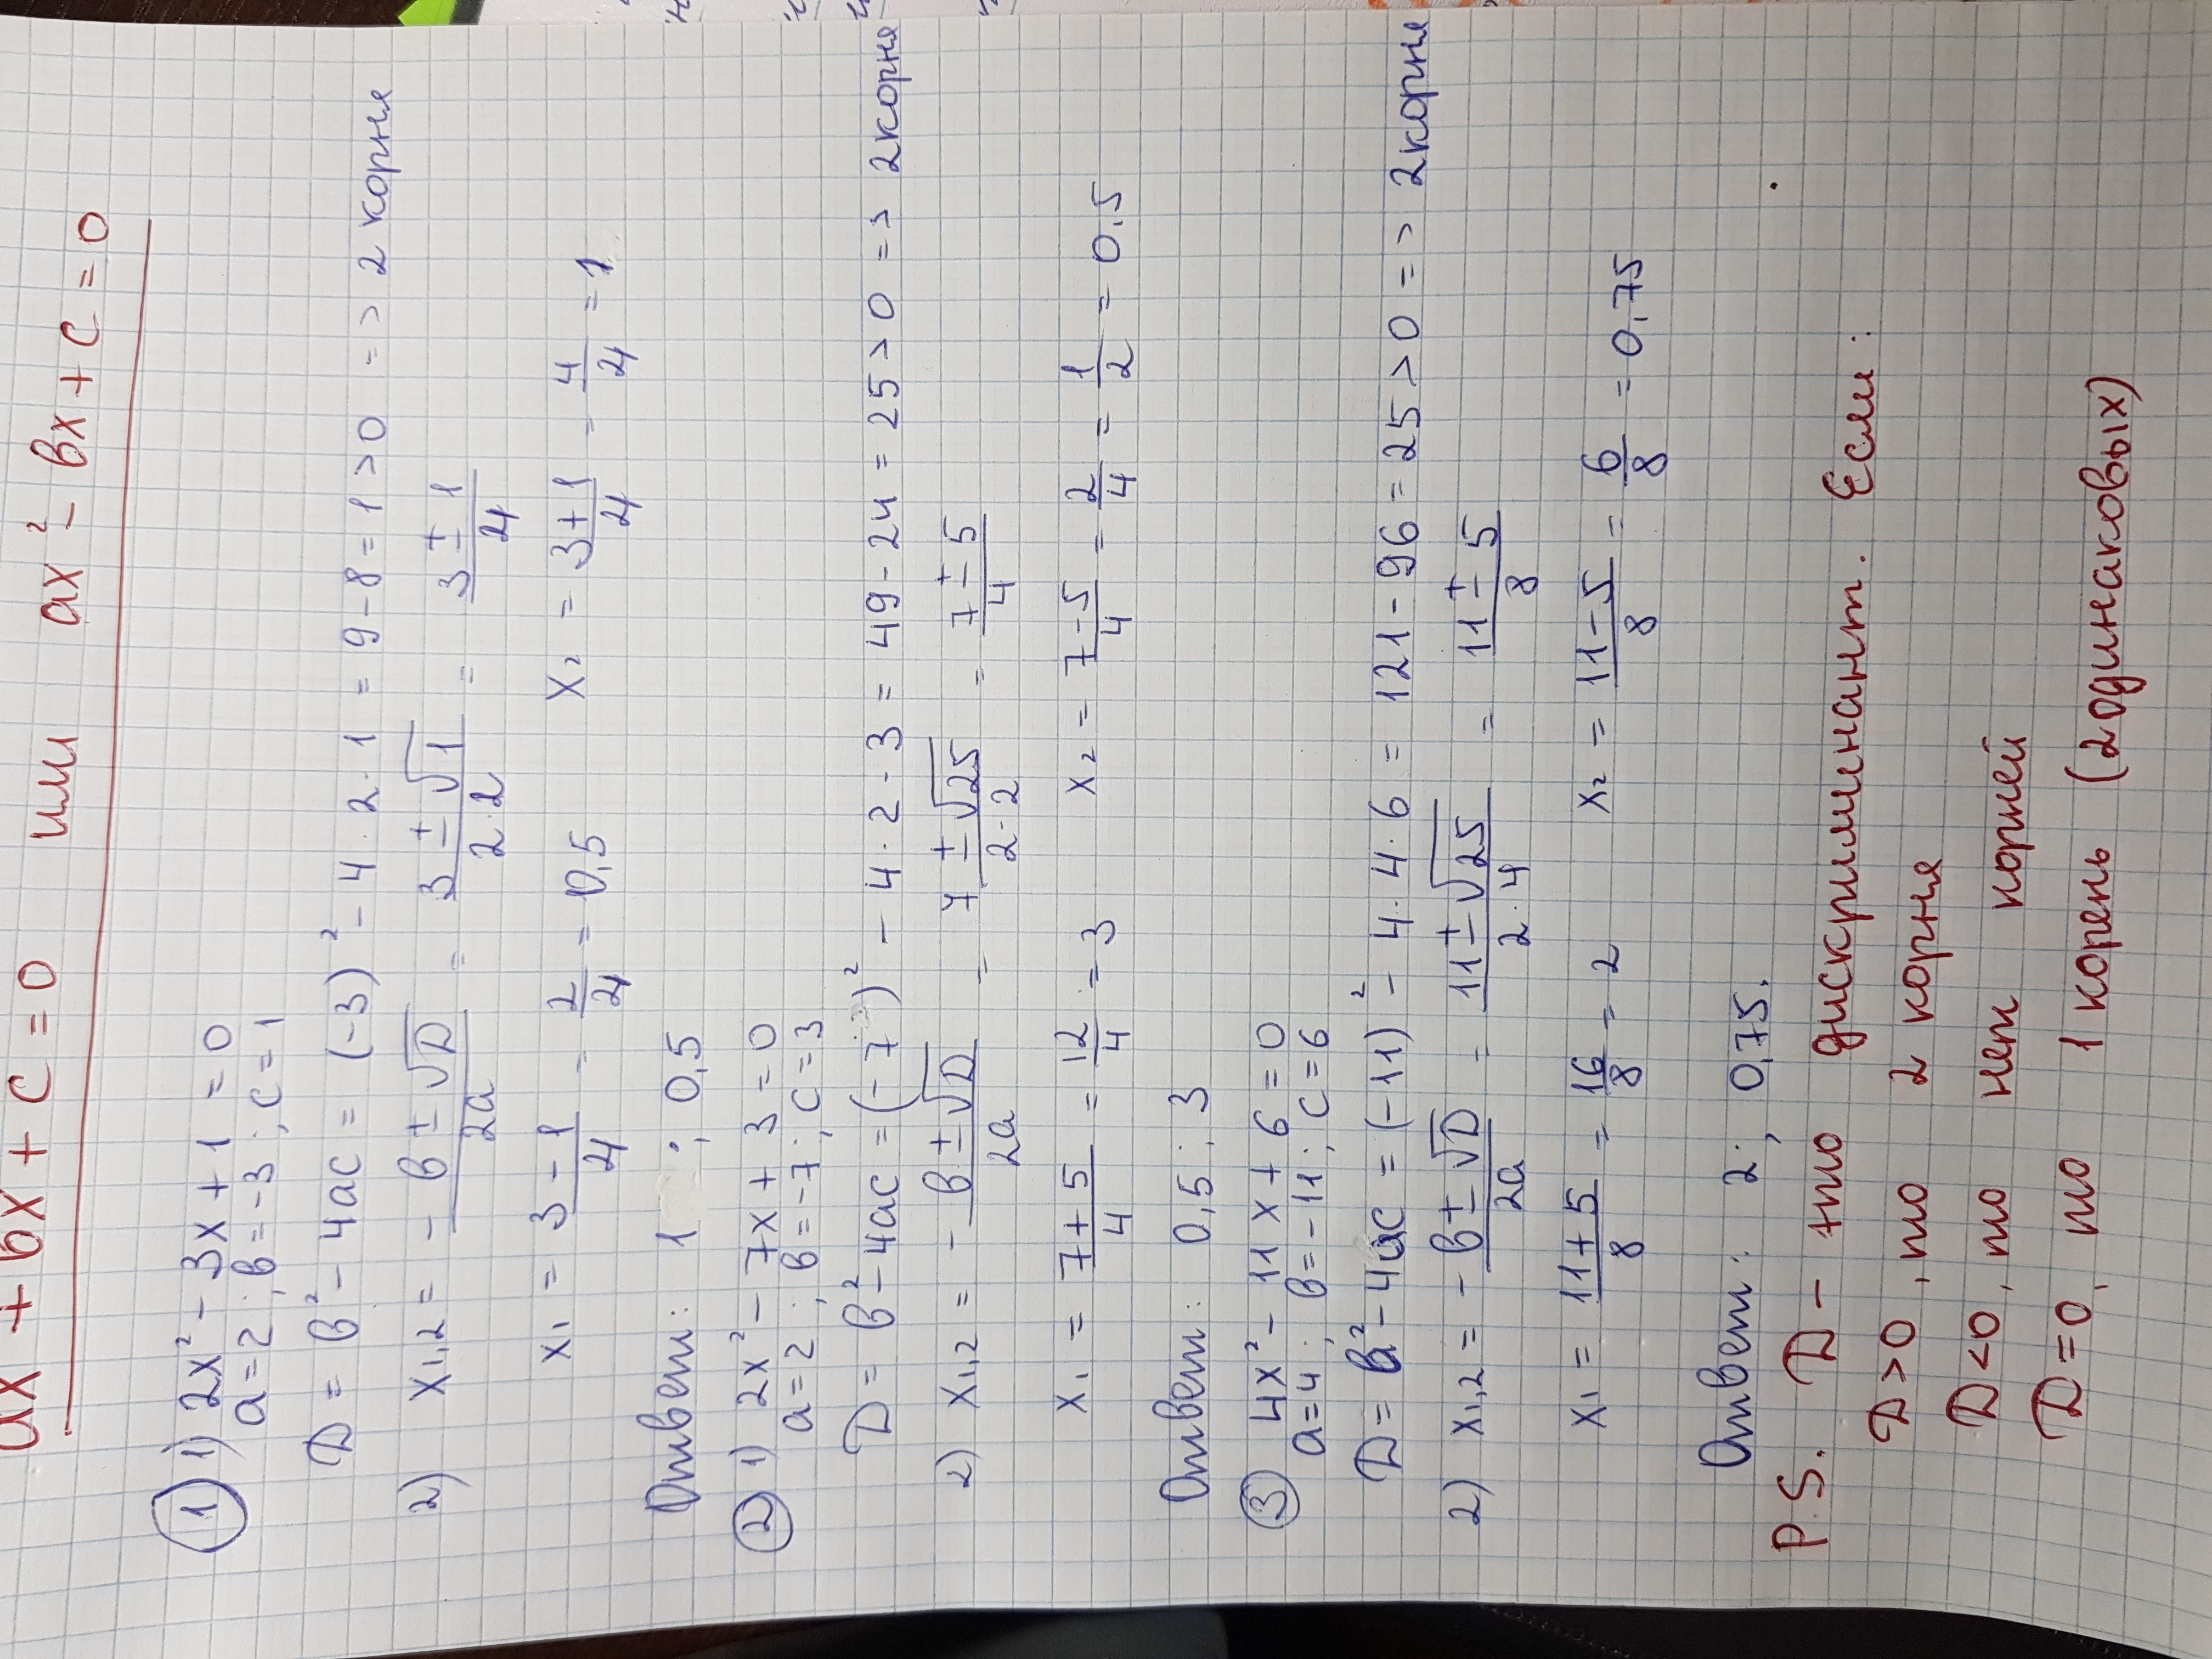 ax + bx + c = 0 или ax² - bx + c = 0
① 1) 2x² - 3x + 1 = 0
a=2; b=-3; c=1
D = b² - 4ac = (-3)² - 4·2·1 = 9-8=1>0 => 2 корня
2) x₁,₂ = -b±√D/2a = 3±√1/2·2 = 3±1/4
x₁ = 3-1/4 = 2/4 = 0,5 x₂ = 3+1/4 = 4/4 = 1
Ответ: 1; 0,5
② 1) 2x² - 7x + 3 = 0
a=2; b=-7; c=3
D = b² - 4ac = (-7)² - 4·2·3 = 49-24=25>0 => 2корня
2) x₁,₂ = -b±√D/2a = 7±√25/2·2 = 7±5/4
x₁ = 7+5/4 = 12/4 = 3 x₂ = 7-5/4 = 2/4 = 1/2 = 0,5
Ответ: 0,5; 3
③ 4x² - 11x + 6 = 0
a=4; b=-11; c=6
D = b² - 4ac = (-11)² - 4·4·6 = 121-96=25>0 => 2корня
2) x₁,₂ = -b±√D/2a = 11±√25/2·4 = 11±5/8
x₁ = 11+5/8 = 16/8 = 2 x₂ = 11-5/8 = 6/8 = 0,75
Ответ: 2; 0,75.
P.S. D - это дискриминант. Если:
D>0, то 2 корня
D<0, то нет корней
D=0, то 1 корень (2одинаковых)